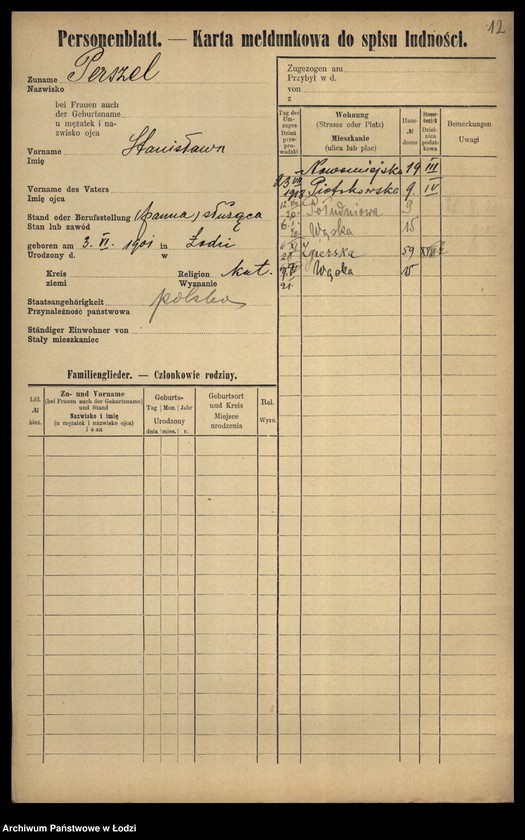 12
Personenblatt. — Karta meldunkowa do spisu ludności.
Zuname Perszel
Nazwisko
bei Frauen auch
der Geburtsname
u mężatek i na-
zwisko ojca
Vorname Stanisława
Imię
Vorname des Vaters
Imię ojca
Stand oder Berufsstellung (panna) służąca
Stan lub zawód
geboren am 3. VI. 1901 in Łodzi
Urodzony d. w
Kreis Religion kat.
ziemi Wyznanie
Staatsangehörigkeit polska
Przynależność państwowa
Ständiger Einwohner von
Stały mieszkaniec
Zugezogen am
Przybył w d.
von
z
Tag des Um-zuges Dzień prze-prowadzki
Wohnung (Strasse oder Platz) Mieszkanie (ulica lub plac)
Haus- № domu
Steuer-bezirk Dzielnica podat-kowa
Bemerkungen Uwagi
Nowomiejska 19 III
Piotrkowska 9. IV
Południowa 9
Wązka 15
Zgierska 59
Wązka 15
21.
Familienglieder. — Członkowie rodziny.
Lfd. № bież.
Zu- und Vorname (bei Frauen auch der Geburtsname) und Stand Nazwisko i imię (u mężatek i nazwisko ojca) i stan
Geburts- Tag Mon. Jahr Urodzony dnia mies. r.
Geburtsort und Kreis Miejsce urodzenia
Rel. Wyzn.
Archiwum Państwowe w Łodzi